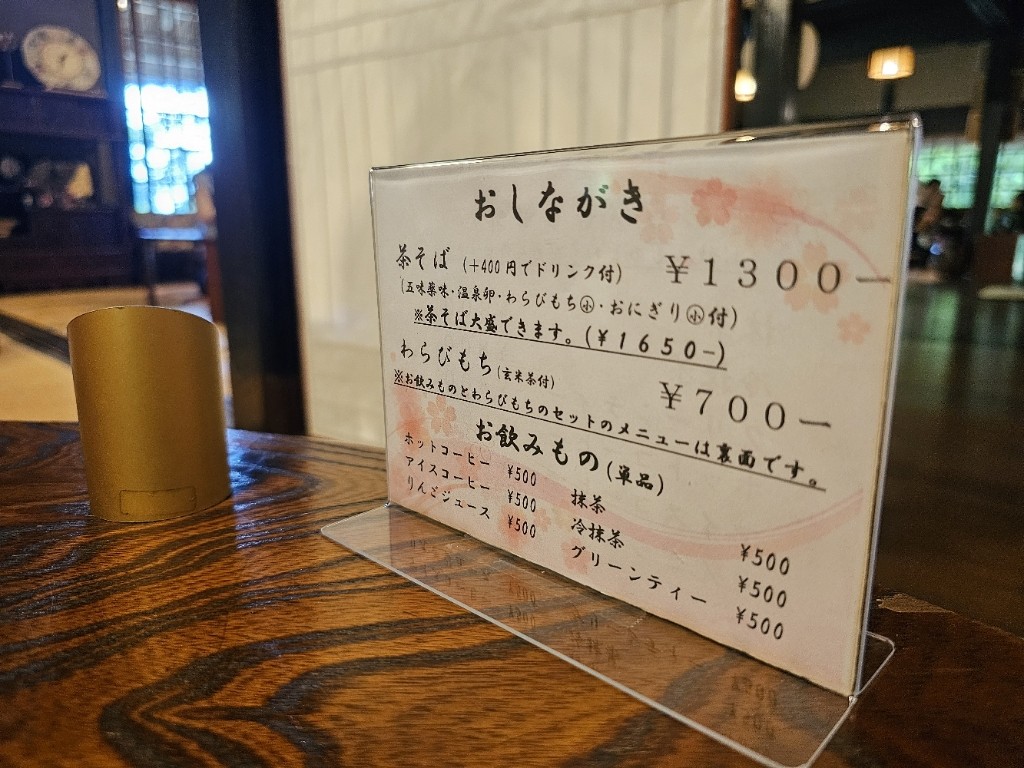 おしながき
茶そば (+400円でドリンク付) ￥1300ー
(五味薬味・温泉卵・わらびもち㊙・おにぎり㊙付)
※茶そば大盛できます。(￥1650-)
わらびもち(玄米茶付) ￥700ー
※お飲みものとわらびもちのセットのメニューは裏面です。
お飲みもの(単品)
ホットコーヒー ￥500 抹茶 ￥500
アイスコーヒー ￥500 冷抹茶 ￥500
りんごジュース ￥500 グリーンティー ￥500